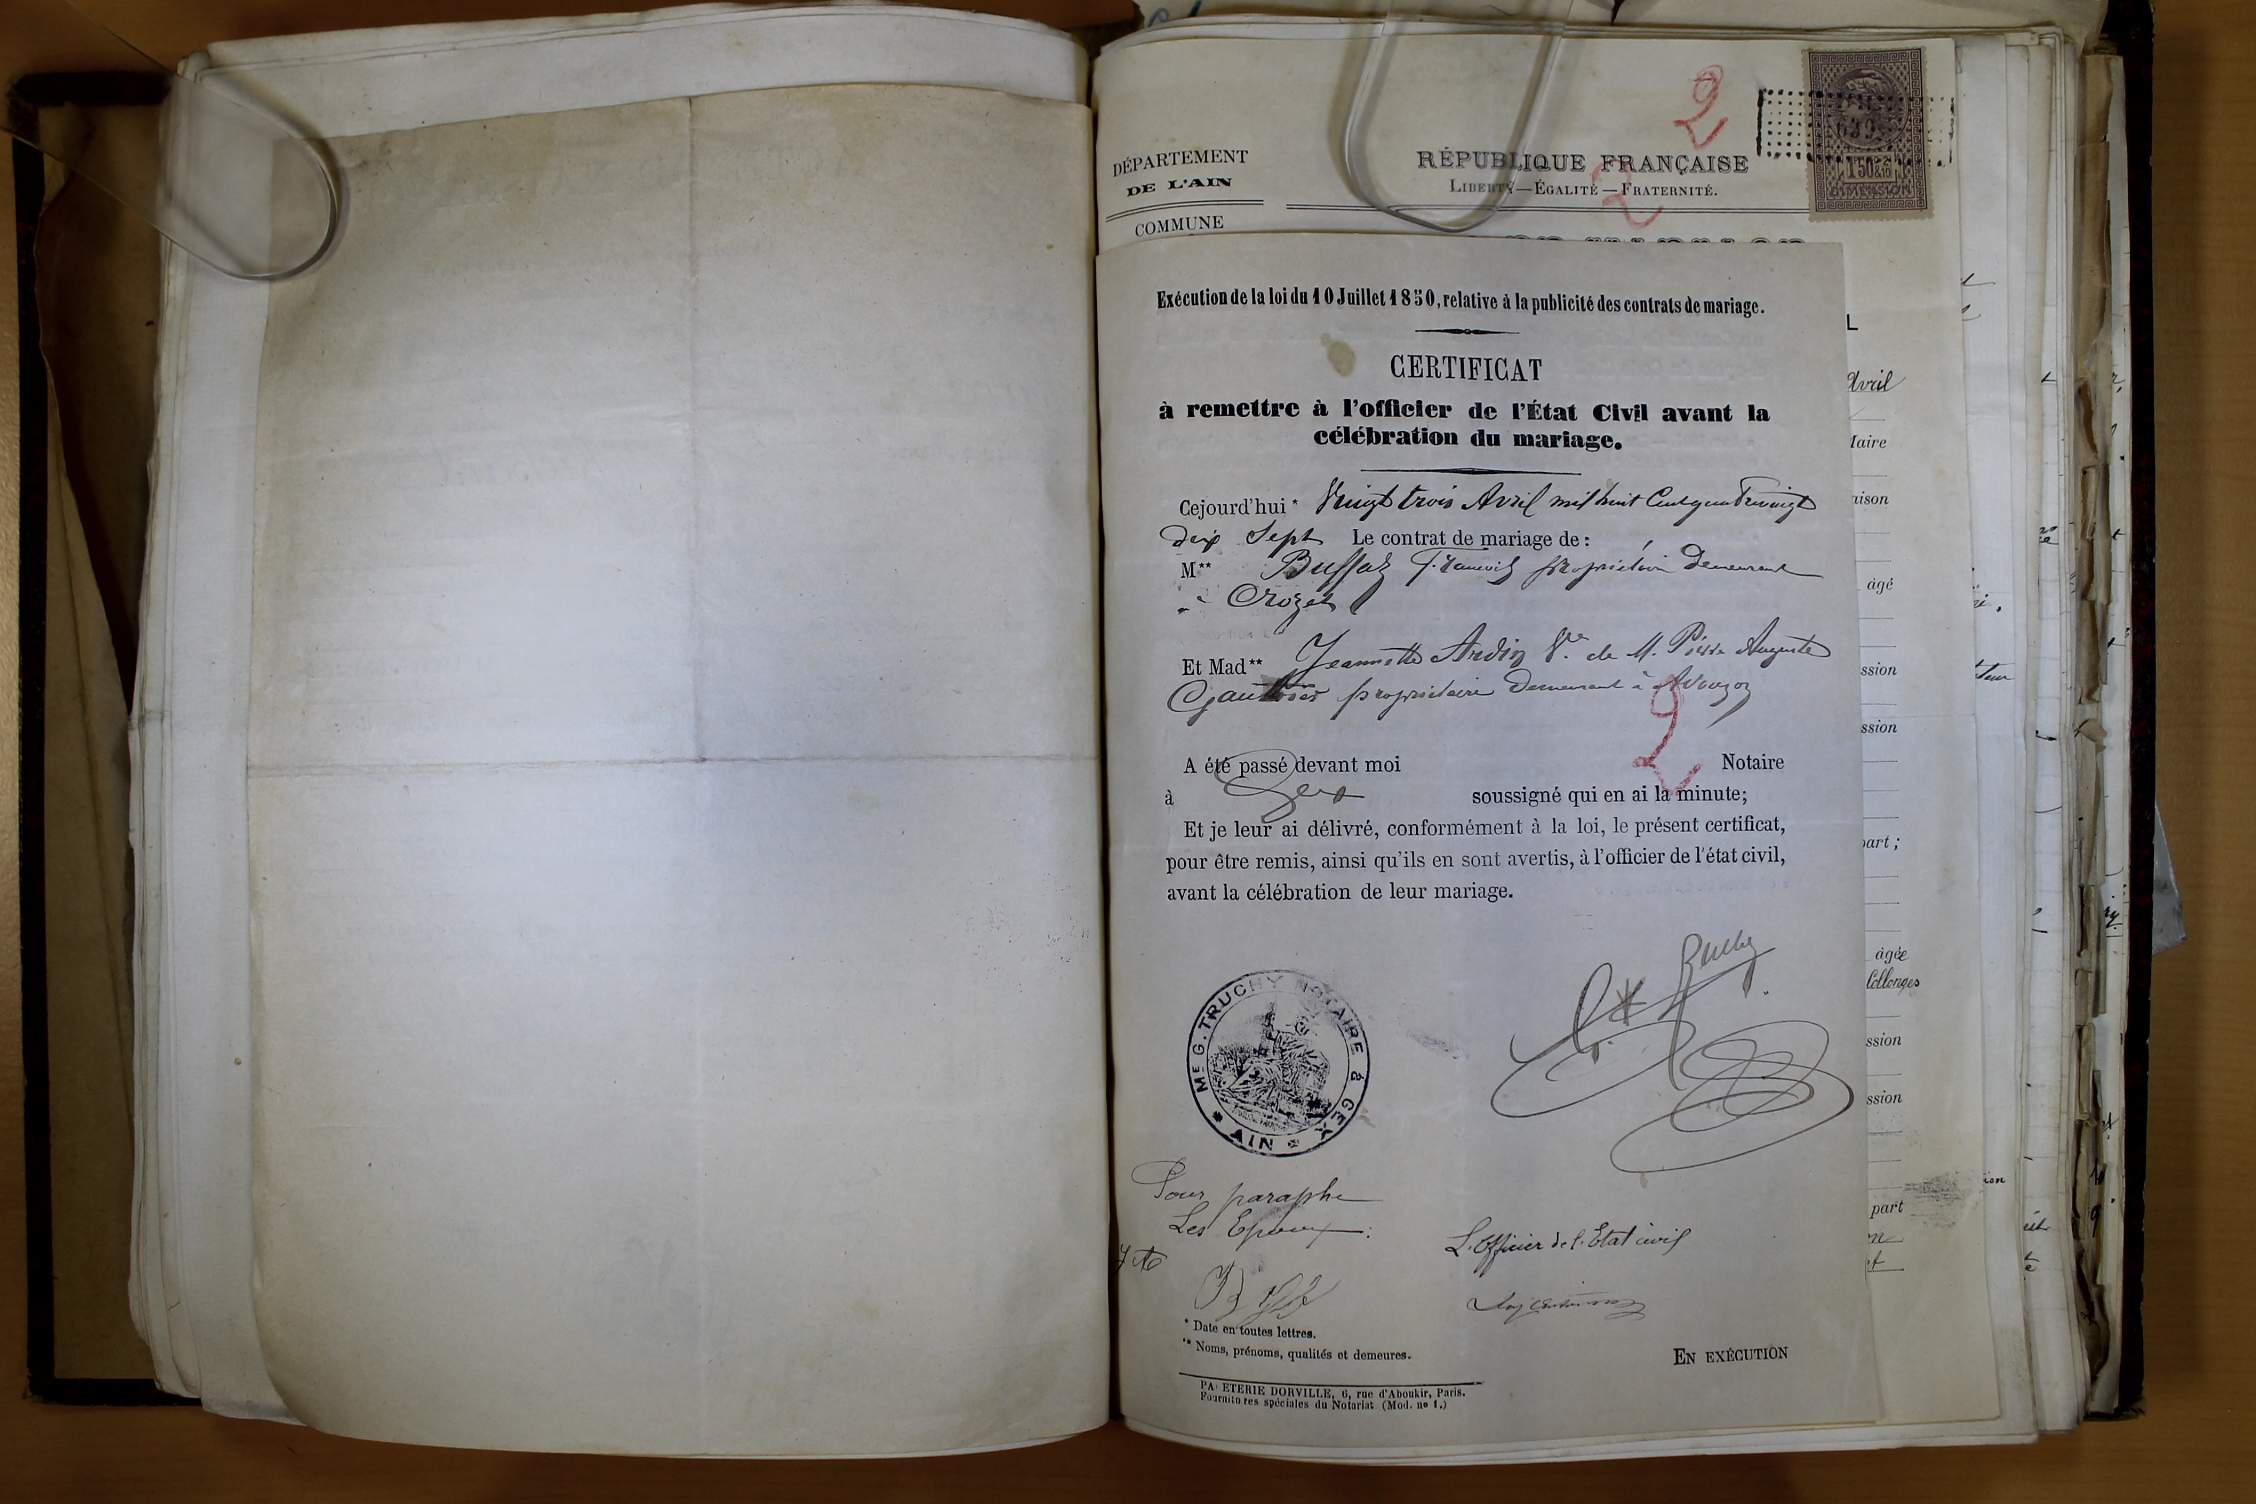 DÉPARTEMENT
DE L'AIN
COMMUNE
RÉPUBLIQUE FRANÇAISE
LIBERTÉ—ÉGALITÉ—FRATERNITÉ.
2
2
639
1F50&10
DIMENSION
Exécution de la loi du 10 Juillet 1850, relative à la publicité des contrats de mariage.
CERTIFICAT
à remettre à l'officier de l'État Civil avant la
célébration du mariage.
Cejourd'hui * Vingt trois Avril mil huit Cent quatrevingt
dix Sept Le contrat de mariage de :
M** Buffaz François propriétaire Demeurant
à Crozet
Et Mad** Jeannette Ardin Ve de M. Pierre Auguste
Gauthier propriétaire Demeurant à Avouzon
2
A été passé devant moi Notaire
à Gex soussigné qui en ai la minute;
Et je leur ai délivré, conformément à la loi, le présent certificat,
pour être remis, ainsi qu'ils en sont avertis, à l'officier de l'état civil,
avant la célébration de leur mariage.
Me G. TRUCHY NOTAIRE à GEX
* AIN *
Pour paraphe
Les Epoux :
L'Officier de l'Etat civil
* Date en toutes lettres.
** Noms, prénoms, qualités et demeures.
EN EXÉCUTION
PAPETERIE DORVILLE, 6, rue d'Aboukir, Paris.
Fournitures spéciales du Notariat (Mod. no 1.)
L
Avril
Maire
aison
âgé
ssion
ssion
part ;
âgée
Collonges
ssion
ssion
part